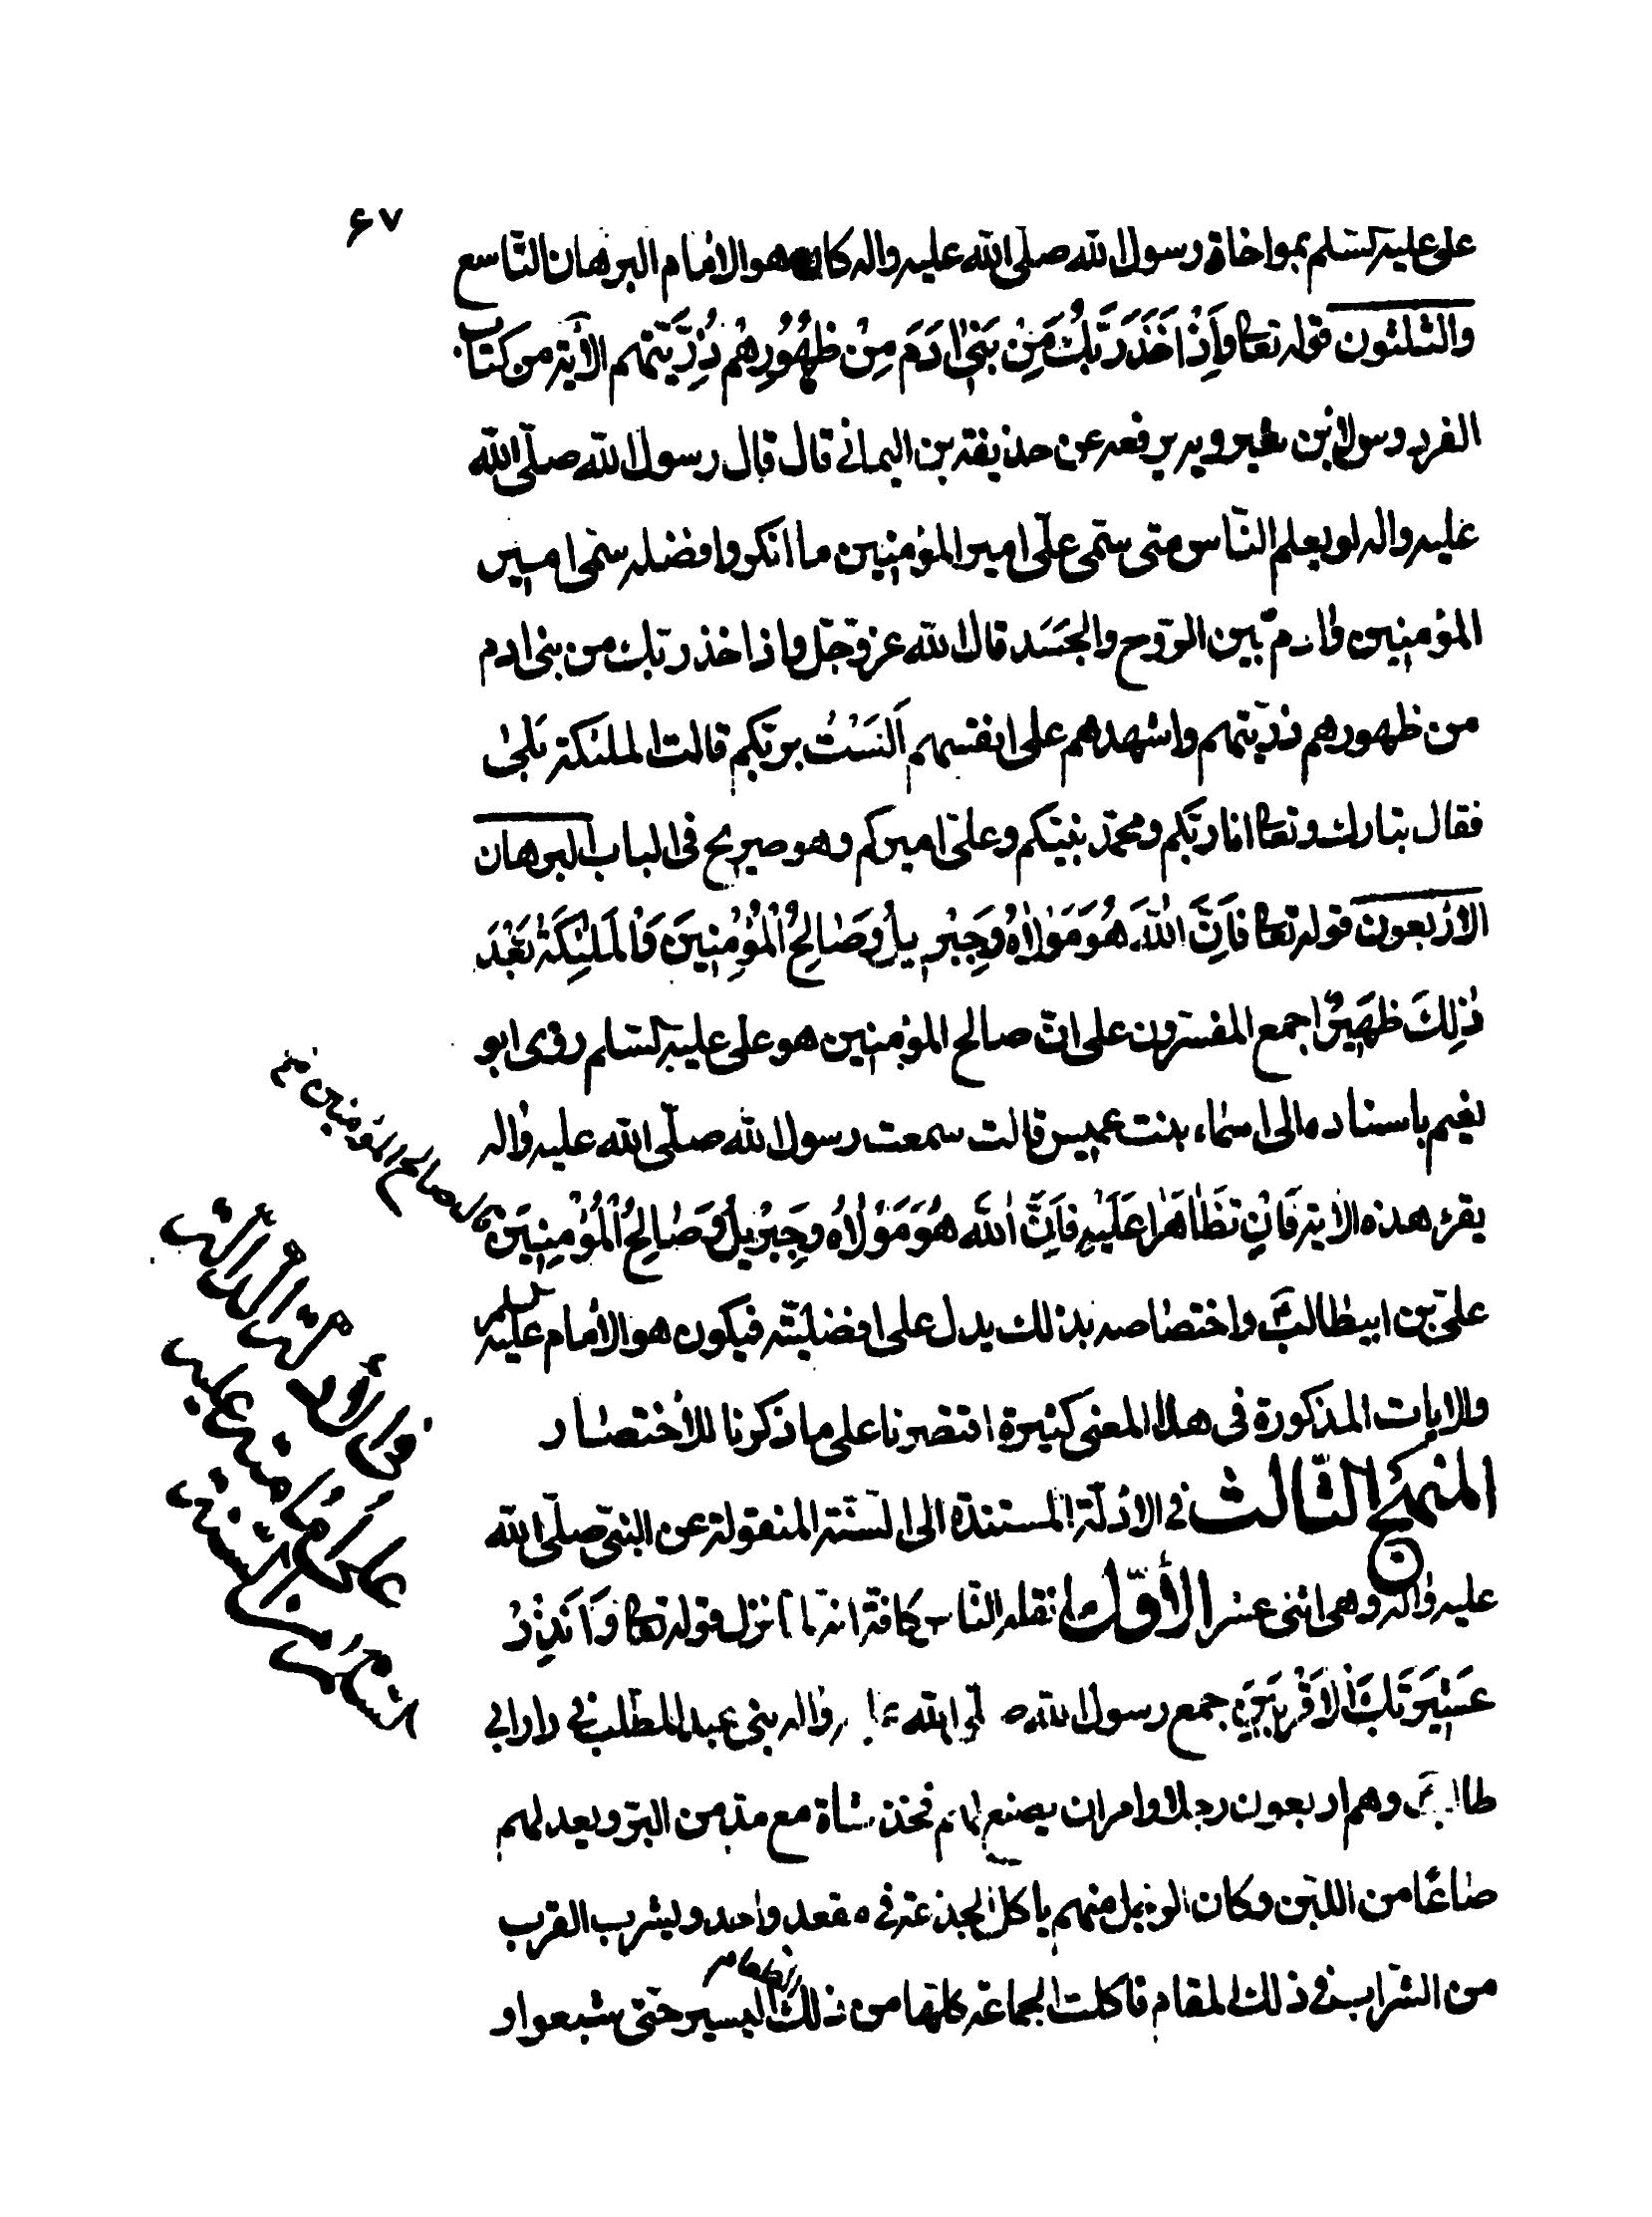 ۶۷
علی علیه السلم بمواخاة رسول الله صلّی الله علیه واله کان هو الامام البرهان التّاسع
والثلثون قوله تعا وَاِذْ اَخَذَ رَبُّكَ مِنْ بَنی اٰدَمَ مِنْ ظُهُورِهِمْ ذُرِّیَّتَهم الأیة من کتاب
الفردوس لابن شیرویه یرفعه عن حذیفة بن الیمانی قال قال رسول الله صلّی الله
علیه واله لو یعلم النّاس متی سمّی علیّ امیر المؤمنین ما انکروا فضله سمّی امیر
المؤمنین واٰدم بین الرّوح والجَسَد قال الله عزّوجلّ واذ اخذ ربّك من بنی ادم
من ظهورهم ذرّیّتهم واشهدهم علی انفسهم اَلَسْتُ بربّکم قالت الملئکة بَلیٰ
فقال تبارك وتعا انا ربّکم ومحمّد نبیّکم وعلیّ امیرکم وهو صریح فی الباب البرهان
الاربعون قوله تعا فَاِنَّ اللّٰهَ هُوَ مَوْلاٰهُ وَجِبْریلُ وَصٰالِحُ الْمُؤْمِنِینَ وَالْمَلٰئِکَةُ بَعْدَ
ذٰلِكَ ظَهیرٌ اجمع المفسّرون علی انّ صالح المؤمنین هو علی علیه السلم روی ابو
نعیم باسناده الی اسماء بنت عمیس قالت سمعت رسول الله صلّی الله علیه واله
یقرء هذه الایة فَاِنْ تَظٰاهَرٰا عَلَیْهِ فَاِنَّ اللّٰه هُوَ مَوْلاٰهُ وَجِبْریلُ وَصٰالِحُ الْمُؤْمِنِینَ
قال صالح المؤمنین
علیّ بن ابیطالب واختصاصه بذلك یدل علی افضلیّته فیکون هو الامام علیه السلم
والایات المذکورة فی هذا المعنی کثیرة اقتصرنا علی ما ذکرنا للاختصار
المنهج الثّالث فی الادلّة المستندة الی السّنّة المنقولة عن النبیّ صلّی الله
علیه واله وهی اثنی عشر الأوّل ما نقله الناس کافّة انه لما نزل قوله تعا وَاَنْذِرْ
عَشیرَتَكَ الْاَقْرَبینَ جمع رسول الله صلّی الله علیه واله بنی عبد المطّلب فی دار ابی
طالب وهم اربعون رجلا وامر ان یصنع لهم فخذ شاة مع مدّ من البرّ ویعد لهم
صاعًا من اللبن وکان الرجل منهم یاکل الجذعة فی مقعد واحد ویشرب الفرق
من الشّراب فی ذلك المقام فاکلت الجماعة کلّها من ذلك الیسیر حتّی شبعوا و
الطعام
فی الأدلة الدالّة
علی امامة علیه
السلام من السّنّة